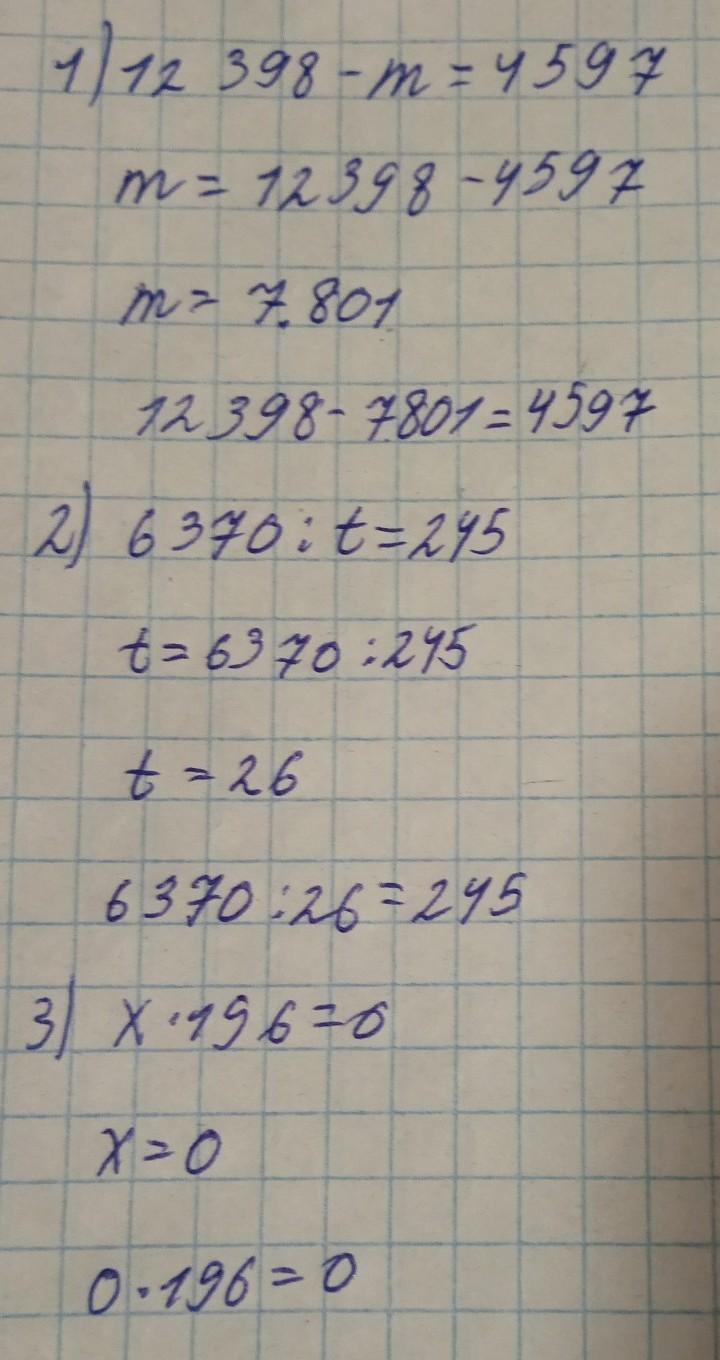 1) 12 398 - m = 4597
m = 12398 - 4597
m = 7.801
12398 - 7801 = 4597
2) 6370 : t = 245
t = 6370 : 245
t = 26
6370 : 26 = 245
3) x · 196 = 0
x = 0
0 · 196 = 0